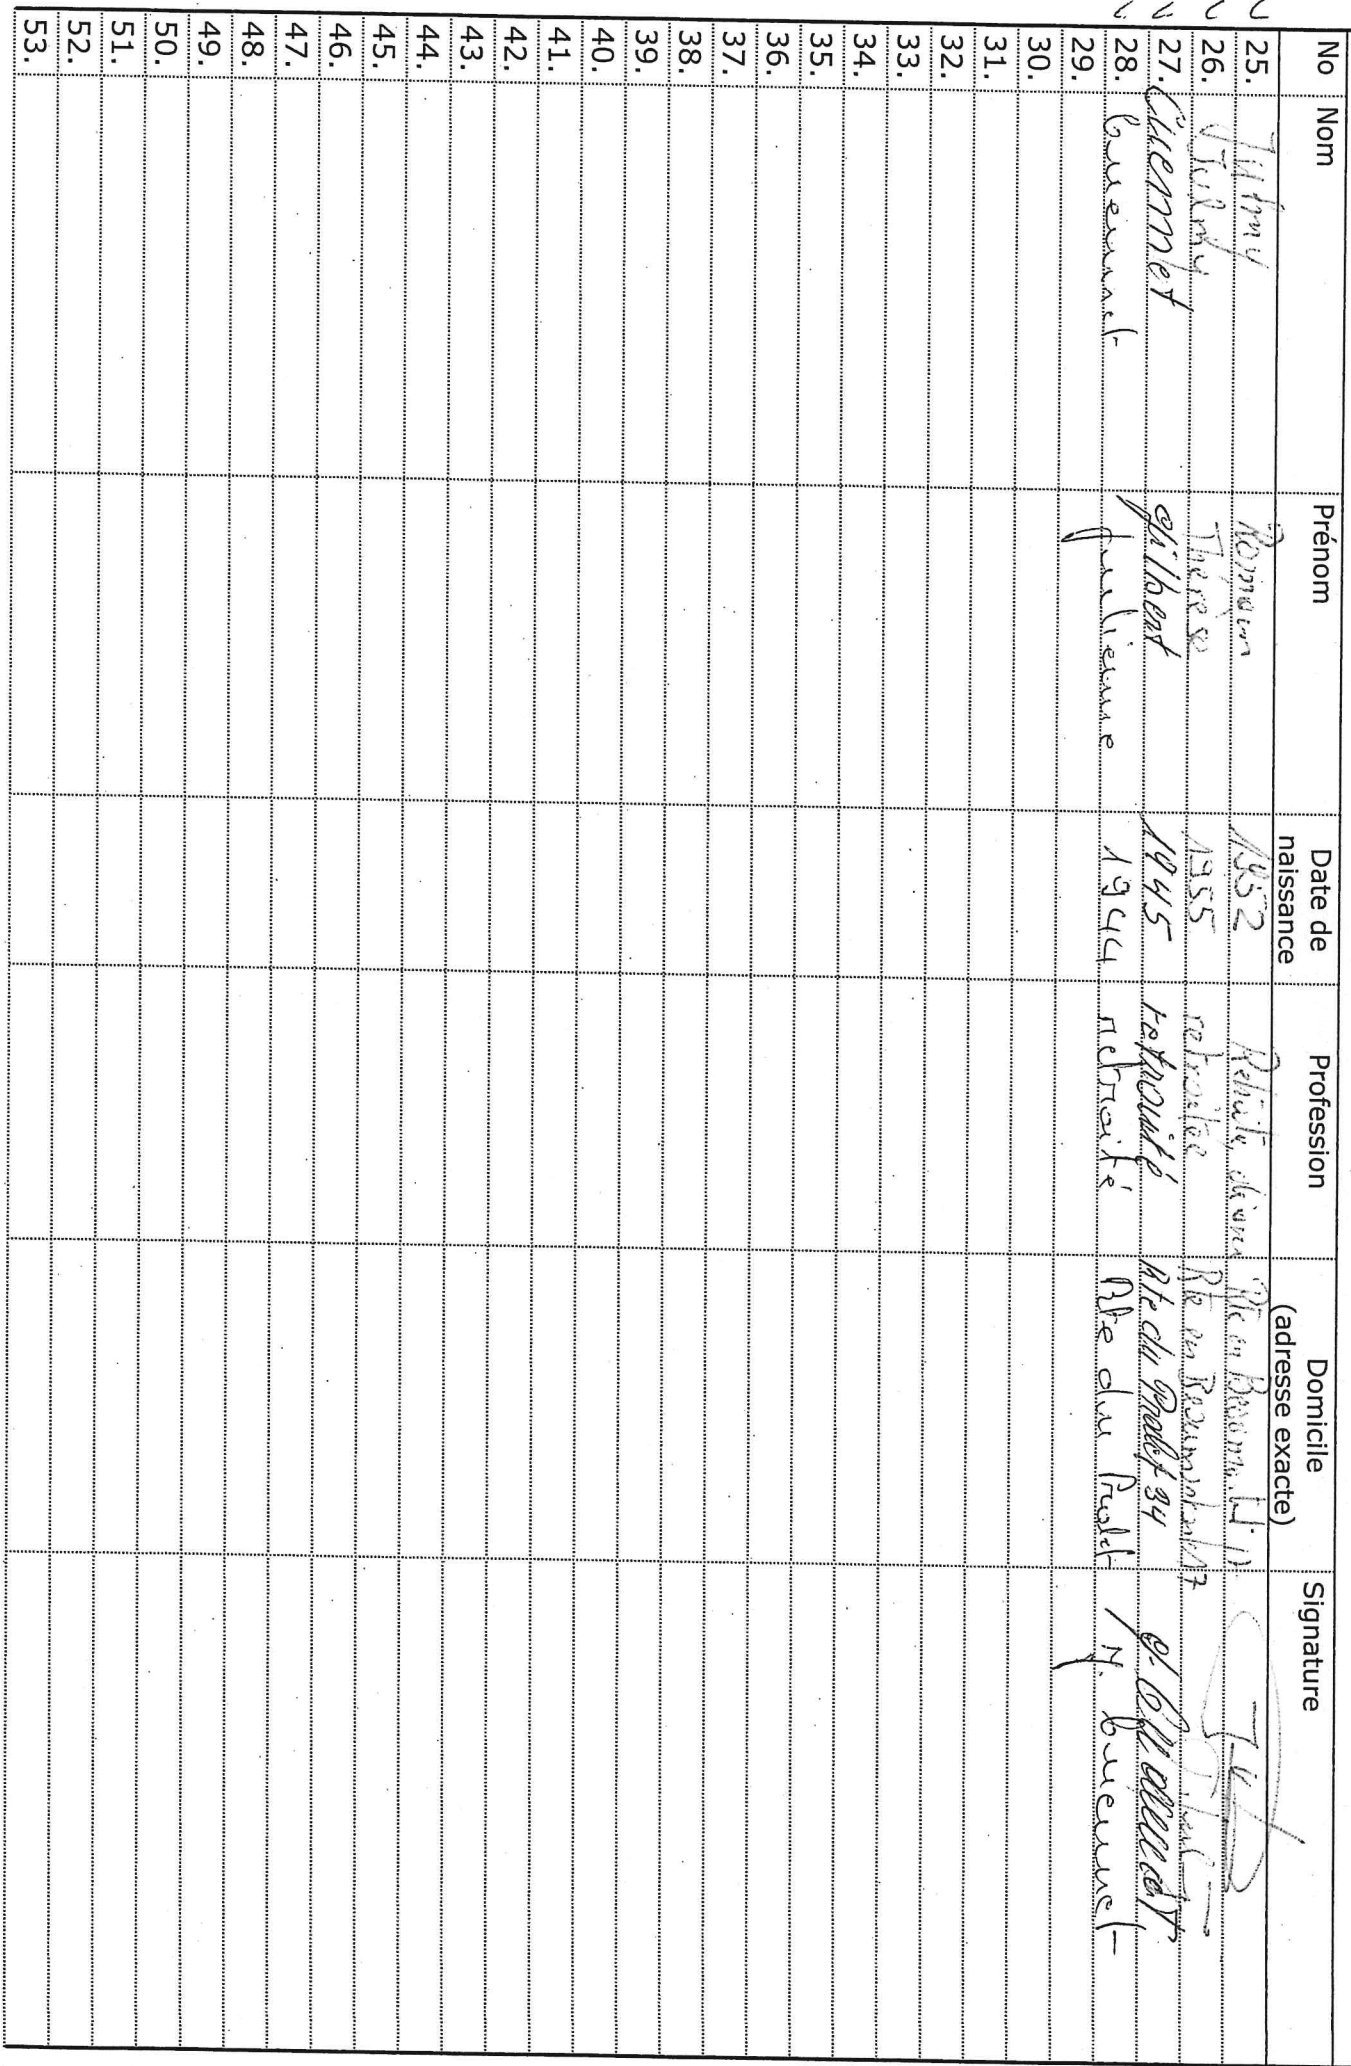 No Nom Prénom Date de naissance Profession Domicile (adresse exacte) Signature
25. Romain 1952
26. Thérèse 1955 retraitée Rte en 17
27. Cuennet Gilbert 1945 retraité Rte du Pralet 34 G. Cuennet
28. Cuennet Julienne 1944 retraité Rte du Pralet J. Cuennet
29.
30.
31.
32.
33.
34.
35.
36.
37.
38.
39.
40.
41.
42.
43.
44.
45.
46.
47.
48.
49.
50.
51.
52.
53.